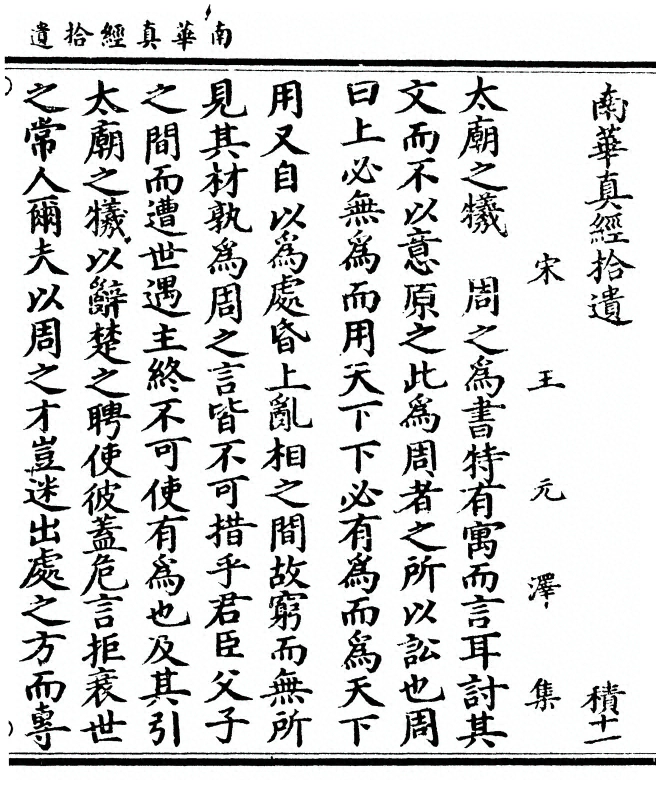 南華真經拾遺
南華真經拾遺 積十一
宋王元澤集
太廟之犧 周之為書特有寓而言耳討其
文而不以意原之此為周者之所以訟也周
曰上必無為而用天下下必有為而為天下
用又自以為處昏上亂相之間故窮而無所
見其材孰為周之言皆不可措乎君臣父子
之間而遭世遇主終不可使有為也及其引
太廟之犧以辭楚之聘使彼蓋危言拒衰世
之常人爾夫以周之才豈迷出處之方而專